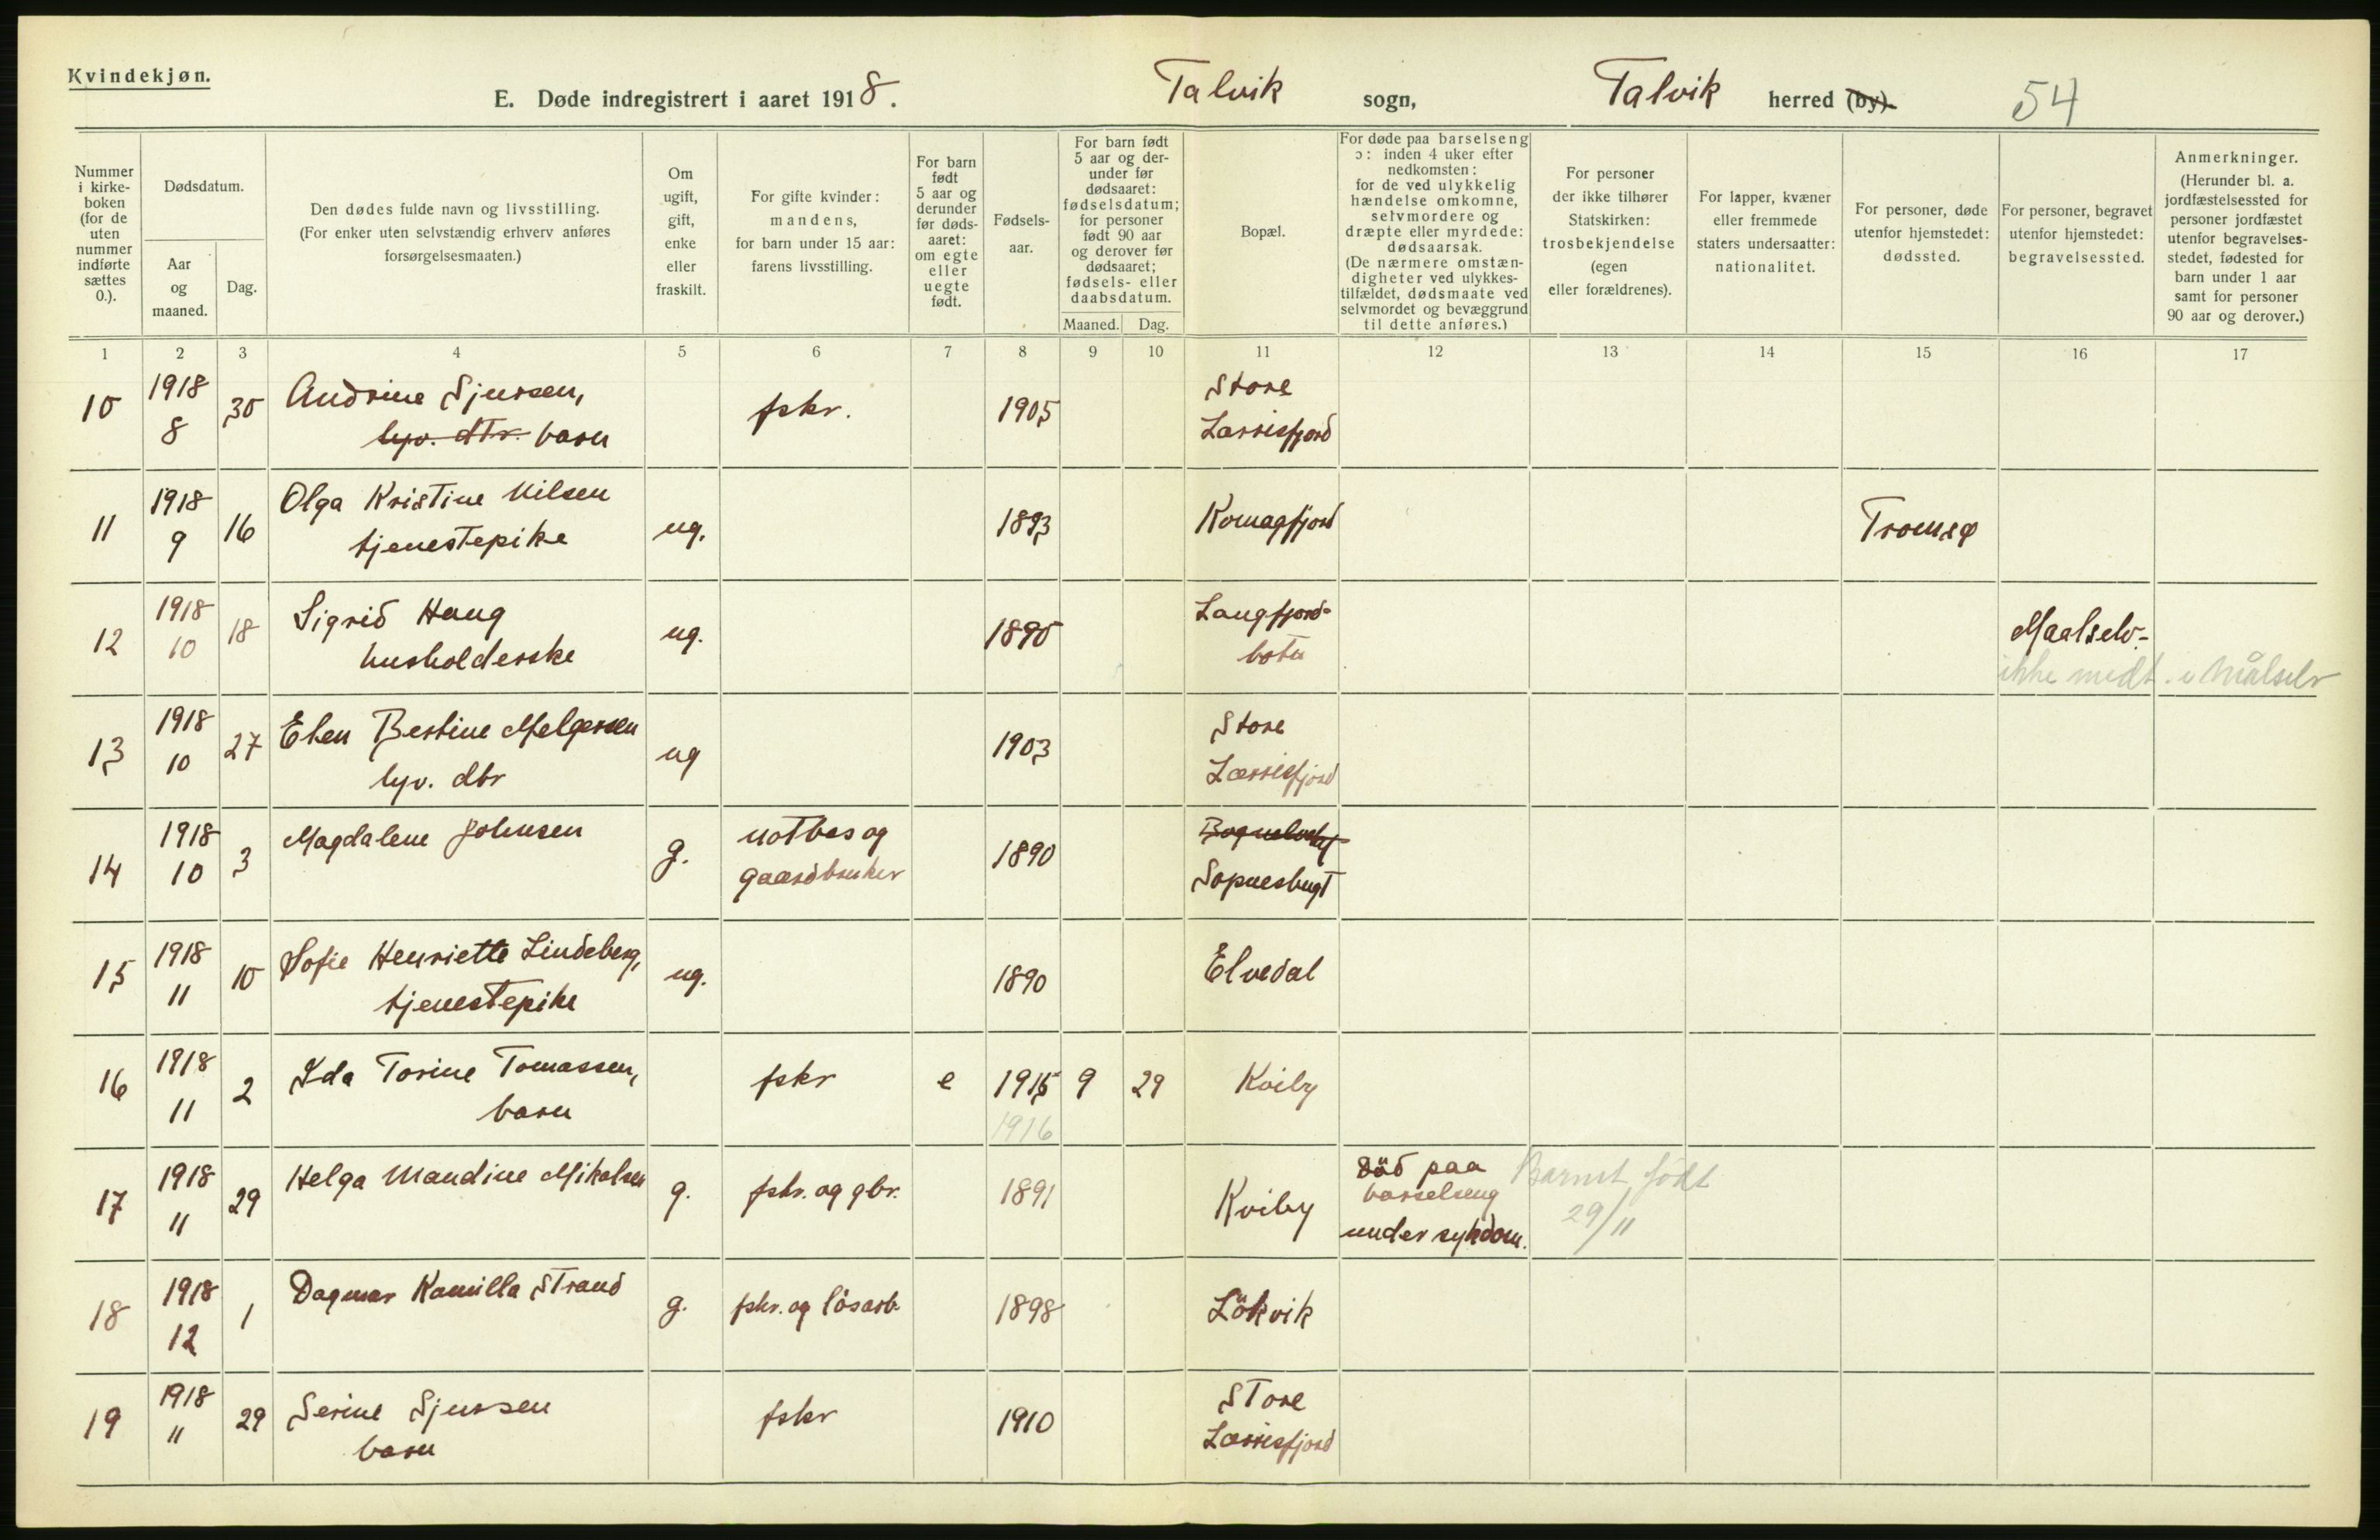 Kvindekjøn.
E. Døde indregistrert i aaret 1918. Talvik sogn, Talvik herred (by) 54
Nummer i kirkeboken (for de uten nummer indførte sættes 0.).
Dødsdatum.
Aar og maaned.
Dag.
Den dødes fulde navn og livsstilling.
(For enker uten selvstændig erhverv anføres forsørgelsesmaaten.)
Om ugift, gift, enke eller fraskilt.
For gifte kvinder: mandens, for barn under 15 aar: farens livsstilling.
For barn født 5 aar og derunder før dødsaaret: om egte eller uegte født.
Fødselsaar.
For barn født 5 aar og derunder før dødsaaret: fødselsdatum; for personer født 90 aar og derover før dødsaaret; fødsels- eller daabsdatum.
Maaned. Dag.
Bopæl.
For døde paa barselseng ɔ: inden 4 uker efter nedkomsten: for de ved ulykkelig hændelse omkomne, selvmordere og dræpte eller myrdede: dødsaarsak.
(De nærmere omstændigheter ved ulykkestilfældet, dødsmaate ved selvmordet og bevæggrund til dette anføres.)
For personer der ikke tilhører Statskirken: trosbekjendelse (egen eller forældrenes).
For lapper, kvæner eller fremmede staters undersaatter: nationalitet.
For personer, døde utenfor hjemstedet: dødssted.
For personer, begravet utenfor hjemstedet: begravelsessted.
Anmerkninger.
(Herunder bl. a. jordfæstelsessted for personer jordfæstet utenfor begravelsesstedet, fødested for barn under 1 aar samt for personer 90 aar og derover.)
1 2 3 4 5 6 7 8 9 10 11 12 13 14 15 16 17
10 1918 8 30 Andrine Sjursen, fskr. 1905 Store
lyv. dtr. barn Lærrisfjord
11 1918 9 16 Olga Kristine Nilsen ug. 1893 Komagfjord Tromsø
tjenestepike
12 1918 10 18 Sigrid Haug ug. 1890 Langfjord- Maalselv.
husholderske botn ikke medt. i Målselv
13 1918 10 27 Elen Bertine Melgersen ug 1903 Store
lyv. dtr Lærrisfjord
14 1918 10 3 Magdalene Johnsen g. notbas og 1890
gaardbruker Sopnesbugt
15 1918 11 10 Sofie Henriette Lindeberg, ug. 1890 Elvedal
tjenestepike
16 1918 11 2 Ida Torine Tomassen, fskr e 1915 9 29 Kviby
barn 1916
17 1918 11 29 Helga Mandine Mikalsen g. fskr. og gbr. 1891 Kviby Död paa Barnet født
barselseng 29/11
under sykdom.
18 1918 12 1 Dagmar Kamilla Strand g. fskr. og lösarb. 1898 Lökvik
19 1918 " 29 Serine Sjursen fskr 1910 Store
barn Lærrisfjord